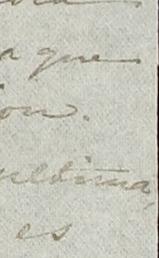 a que
ion.
ultima,
es